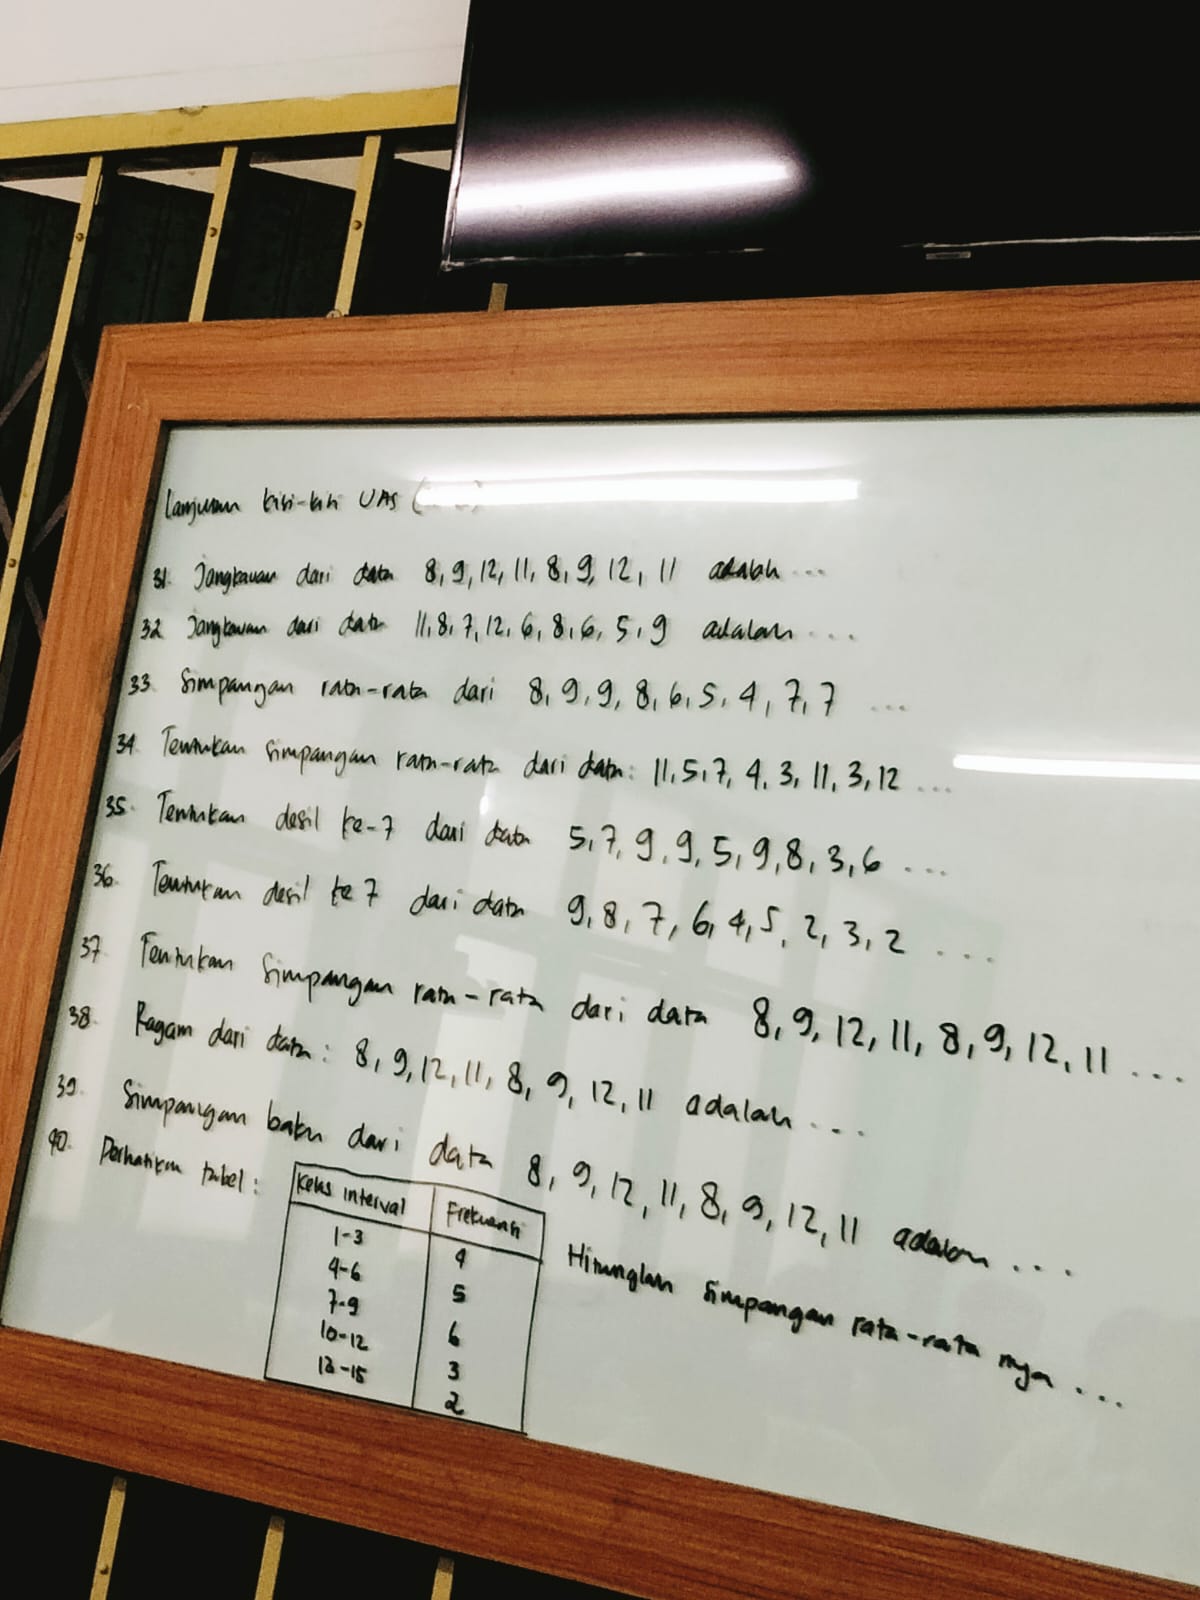 Lanjutan kisi-kisi UAS
31. Jangkauan dari data 8, 9, 12, 11, 8, 9, 12, 11 adalah ...
32. Jangkauan dari data 11, 8, 7, 12, 6, 8, 6, 5, 9 adalah ...
33. Simpangan rata-rata dari 8, 9, 9, 8, 6, 5, 4, 7, 7 ...
34. Tentukan simpangan rata-rata dari data: 11, 5, 7, 4, 3, 11, 3, 12 ...
35. Tentukan desil ke-7 dari data 5, 7, 9, 9, 5, 9, 8, 3, 6 ...
36. Tentukan desil ke 7 dari data 9, 8, 7, 6, 4, 5, 2, 3, 2 ....
37. Tentukan simpangan rata-rata dari data 8, 9, 12, 11, 8, 9, 12, 11 ...
38. Ragam dari data: 8, 9, 12, 11, 8, 9, 12, 11 adalah ...
39. Simpangan baku dari data 8, 9, 12, 11, 8, 9, 12, 11 adalah ...
40. Perhatikan tabel:
Kelas interval Frekuensi
1-3 4
4-6 5
7-9 6
10-12 3
13-15 2
Hitunglah simpangan rata-rata nya ...